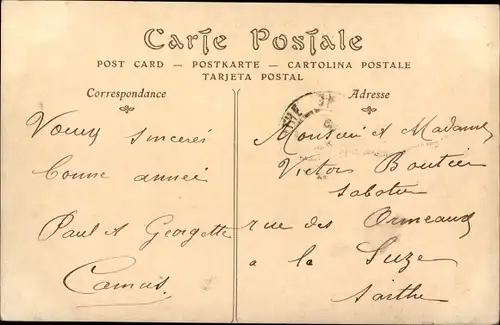 Carte Postale
POST CARD — POSTKARTE — CARTOLINA POSTALE
TARJETA POSTAL
Correspondance
Voeux sincères
bonne année
Paul et Georgette
Camus
Adresse
Monsieur et Madame
Victor Boutier
sabotier
rue des Ormeaux
a la Suze
Sarthe